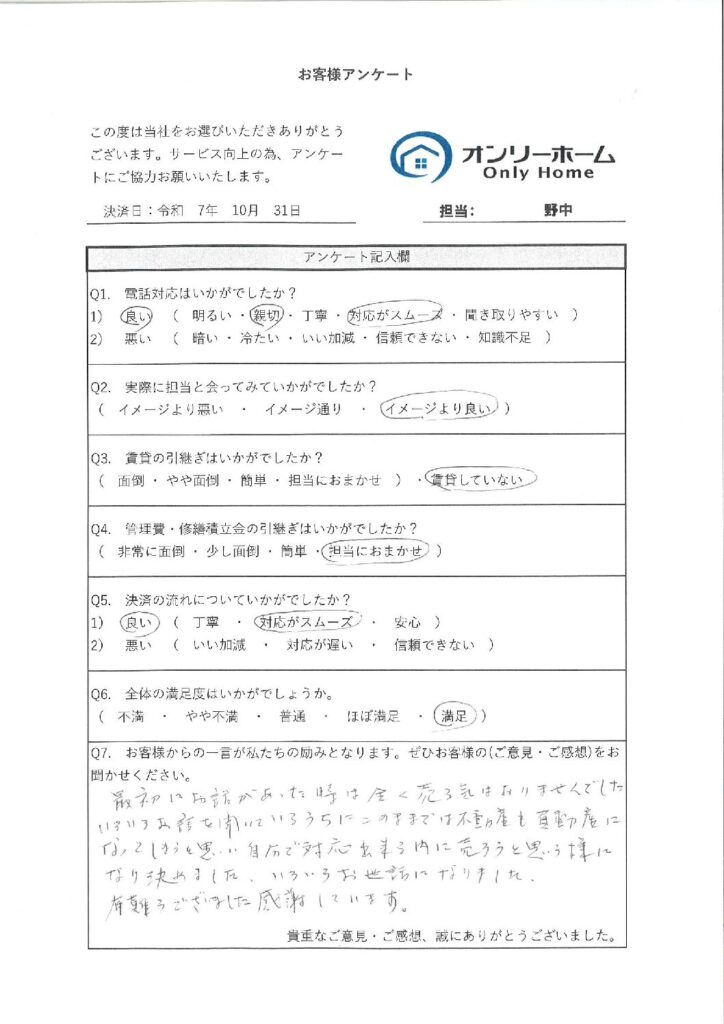 お客様アンケート
この度は当社をお選びいただきありがとう
ございます。サービス向上の為、アンケー
トにご協力お願いいたします。
オンリーホーム
Only Home
決済日：令和 7年 10月 31日
担当： 野中
アンケート記入欄
Q1. 電話対応はいかがでしたか？
1) 良い （ 明るい ・ 親切 ・ 丁寧 ・ 対応がスムーズ ・ 聞き取りやすい ）
2) 悪い （ 暗い ・ 冷たい ・ いい加減 ・ 信頼できない ・ 知識不足 ）
Q2. 実際に担当と会ってみていかがでしたか？
（ イメージより悪い ・ イメージ通り ・ イメージより良い ）
Q3. 賃貸の引継ぎはいかがでしたか？
（ 面倒 ・ やや面倒 ・ 簡単 ・ 担当におまかせ ） ・ 賃貸していない
Q4. 管理費・修繕積立金の引継ぎはいかがでしたか？
（ 非常に面倒 ・ 少し面倒 ・ 簡単 ・ 担当におまかせ ）
Q5. 決済の流れについていかがでしたか？
1) 良い （ 丁寧 ・ 対応がスムーズ ・ 安心 ）
2) 悪い （ いい加減 ・ 対応が遅い ・ 信頼できない ）
Q6. 全体の満足度はいかがでしょうか。
（ 不満 ・ やや不満 ・ 普通 ・ ほぼ満足 ・ 満足 ）
Q7. お客様からの一言が私たちの励みとなります。ぜひお客様の(ご意見・ご感想)をお
聞かせください。
最初にお話があった時は全く売る気はありませんでした
いろいろお話を聞いているうちにこのままでは不動産も負動産に
なってしまうと思い自分で対応出来る内に売ろうと思う様に
なり決めました、いろいろお世話になりました、
有難うございました感謝しています。
貴重なご意見・ご感想、誠にありがとうございました。